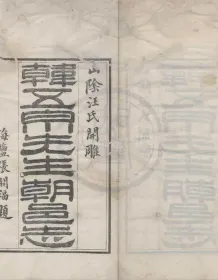 山陰汪氏開雕
韓五泉先生朝邑志
海鹽張開福題